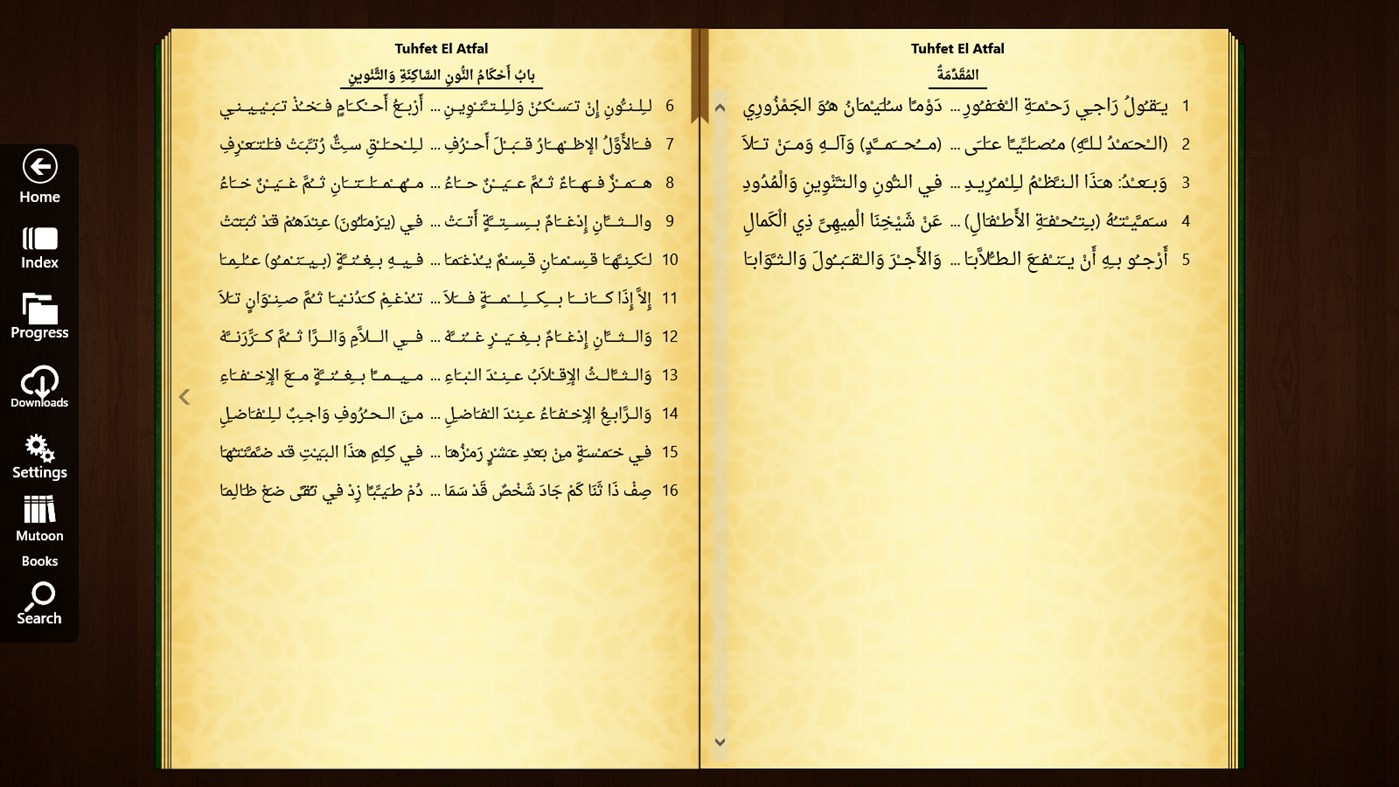 Home
Index
Progress
Downloads
Settings
Mutoon
Books
Search
Tuhfet El Atfal
المُقَدِّمَةُ
1 يَقُولُ رَاجِي رَحْمَةِ الْغَفُورِ ... دَوْمًا سُلَيْمَانُ هُوَ الجَمْزُورِي
2 (الْحَمْدُ لِلَّهِ) مُصَلِّيًا عَلَى ... (مُحَمَّدٍ) وَآلِهِ وَمَنْ تَلاَ
3 وَبَعْدُ: هَذَا النَّظْمُ لِلْمُرِيدِ ... فِي النُّونِ والتَّنْوِينِ وَالْمُدُودِ
4 سَمَّيْتُهُ (بِتُحْفَةِ الأَطْفَالِ) ... عَنْ شَيْخِنَا الْمِيهِىِّ ذِي الْكَمالِ
5 أَرْجُو بِهِ أَنْ يَنْفَعَ الطُّلاَّبَا ... وَالأَجْرَ وَالْقَبُولَ وَالثَّوَابَا
Tuhfet El Atfal
بابُ أَحْكَامُ النُّونِ السَّاكِنَةِ وَالتَّنْوينِ
6 لِلنُّونِ إِنْ تَسْكُنْ وَلِلتَّنْوِينِ ... أَرْبَعُ أَحْكَامٍ فَخُذْ تَبْيِينِي
7 فَالأَوَّلُ الإظْهَارُ قَبْلَ أَحْرُفِ ... لِلْحَلْقِ سِتٌّ رُتِّبَتْ فَلْتَعْرِفِ
8 هَمْزٌ فَهَاءٌ ثُمَّ عَيْنٌ حَاءُ ... مُهْمَلَتَانِ ثُمَّ غَيْنٌ خَاءُ
9 والثَّانِ إِدْغَامٌ بِسِتَّةٍ أَتَتْ ... في (يَرْمَلُونَ) عِنْدَهُمْ قَدْ ثَبَتَتْ
10 لَكِنَّهَا قِسْمَانِ قِسْمٌ يُدْغَمَا ... فِيهِ بِغُنَّةٍ (بِيَنْمُو) عُلِمَا
11 إِلاَّ إِذَا كَانَا بِكِلْمَةٍ فَلاَ ... تُدْغِمْ كَدُنْيَا ثُمَّ صِنْوَانٍ تَلاَ
12 وَالثَّانِ إِدْغَامٌ بِغَيْرِ غُنَّهْ ... فِي اللاَّمِ وَالرَّا ثُمَّ كَرِّرَنَّهْ
13 وَالثَّالثُ الإِقْلاَبُ عِنْدَ الْبَاءِ ... مِيمًا بِغُنَّةٍ مَعَ الإِخْفَاءِ
14 وَالرَّابِعُ الإِخْفَاءُ عِنْدَ الْفَاضِلِ ... مِنَ الحُرُوفِ وَاجِبٌ لِلْفَاضِلِ
15 فِي خَمْسَةٍ مِنْ بَعْدِ عَشْرٍ رَمْزُهَا ... فِي كِلْمِ هَذَا البَيْتِ قَد ضَمَّنْتُهَا
16 صِفْ ذَا ثَنَا كَمْ جَادَ شَخْصٌ قَدْ سَمَا ... دُمْ طَيِّبًا زِدْ فِي تُقًى ضَعْ ظَالِمَا